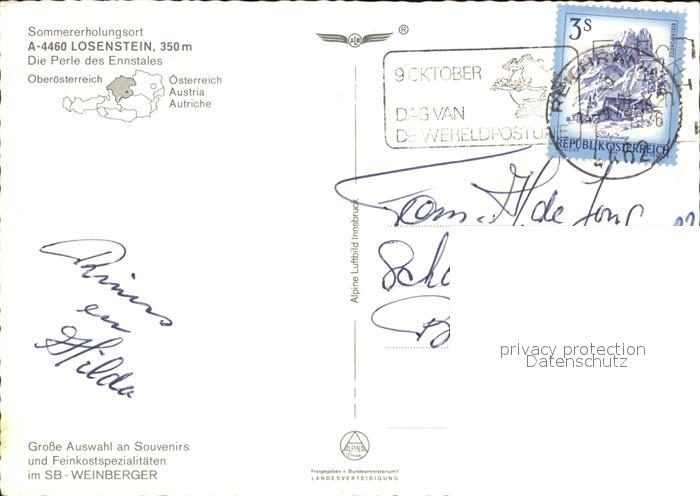 Sommererholungsort
A-4460 LOSENSTEIN, 350 m
Die Perle des Ennstales
Oberösterreich
Österreich
Austria
Autriche
ALB
®
9 OKTOBER
DAG VAN
DE WERELDPOSTUNIE
3 S
REPUBLIK ÖSTERREICH
4462
Fam. H de Jong
Scho
B
Rinus
en
Hilda
Alpine Luftbild Innsbruck
privacy protection
Datenschutz
Große Auswahl an Souvenirs
und Feinkostspezialitäten
im SB - WEINBERGER
ALPINE
Druck
Freigegeben v. Bundesministerium f.
LANDESVERTEIDIGUNG